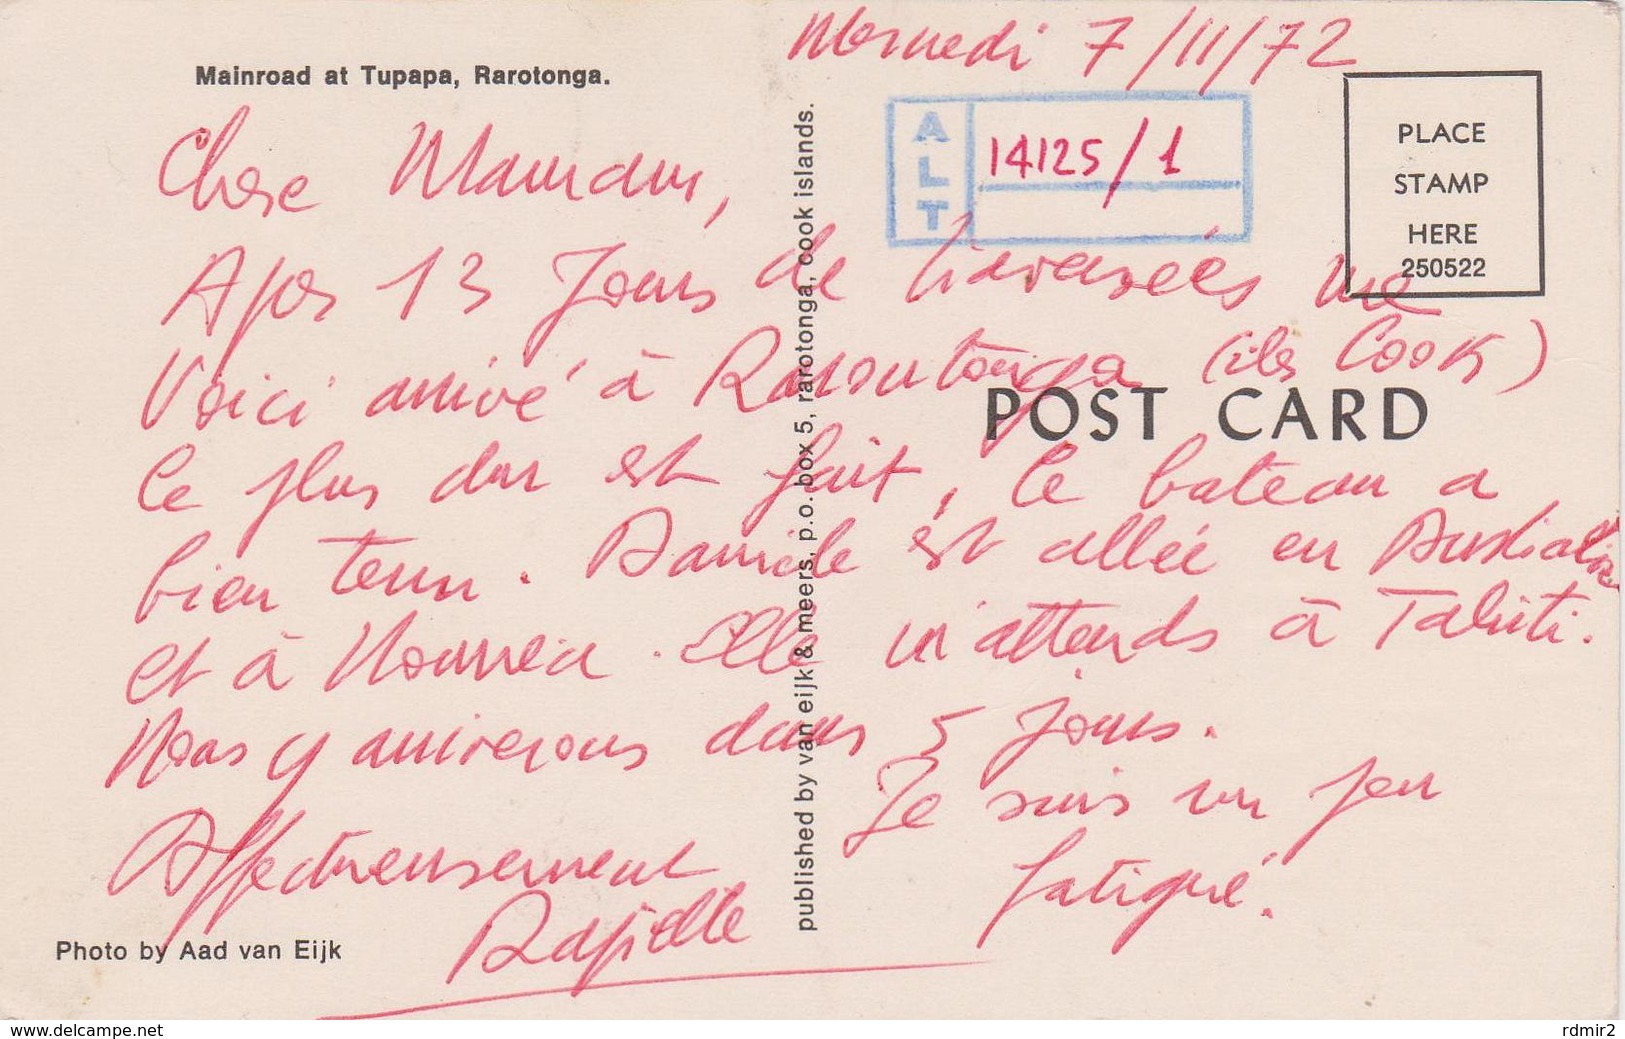 Mercredi 7/11/72
Mainroad at Tupapa, Rarotonga.
ALT
14125/1
PLACE
STAMP
HERE
250522
POST CARD
Chère Maman,
Après 13 Jours de traversées me
Voici arrivé à Raroutonga (iles Cook)
Le plus dur est fait, le bateau a
bien tenu. Danièle est allée en Australie
et à Nouméa. Elle m'attends à Tahiti.
Nous y arriverons dans 5 jours.
Je suis un peu
fatigué.
Affectueusement
published by van eijk & meers, p.o. box 5, rarotonga, cook islands.
Photo by Aad van Eijk
www.delcampe.net
rdmir2